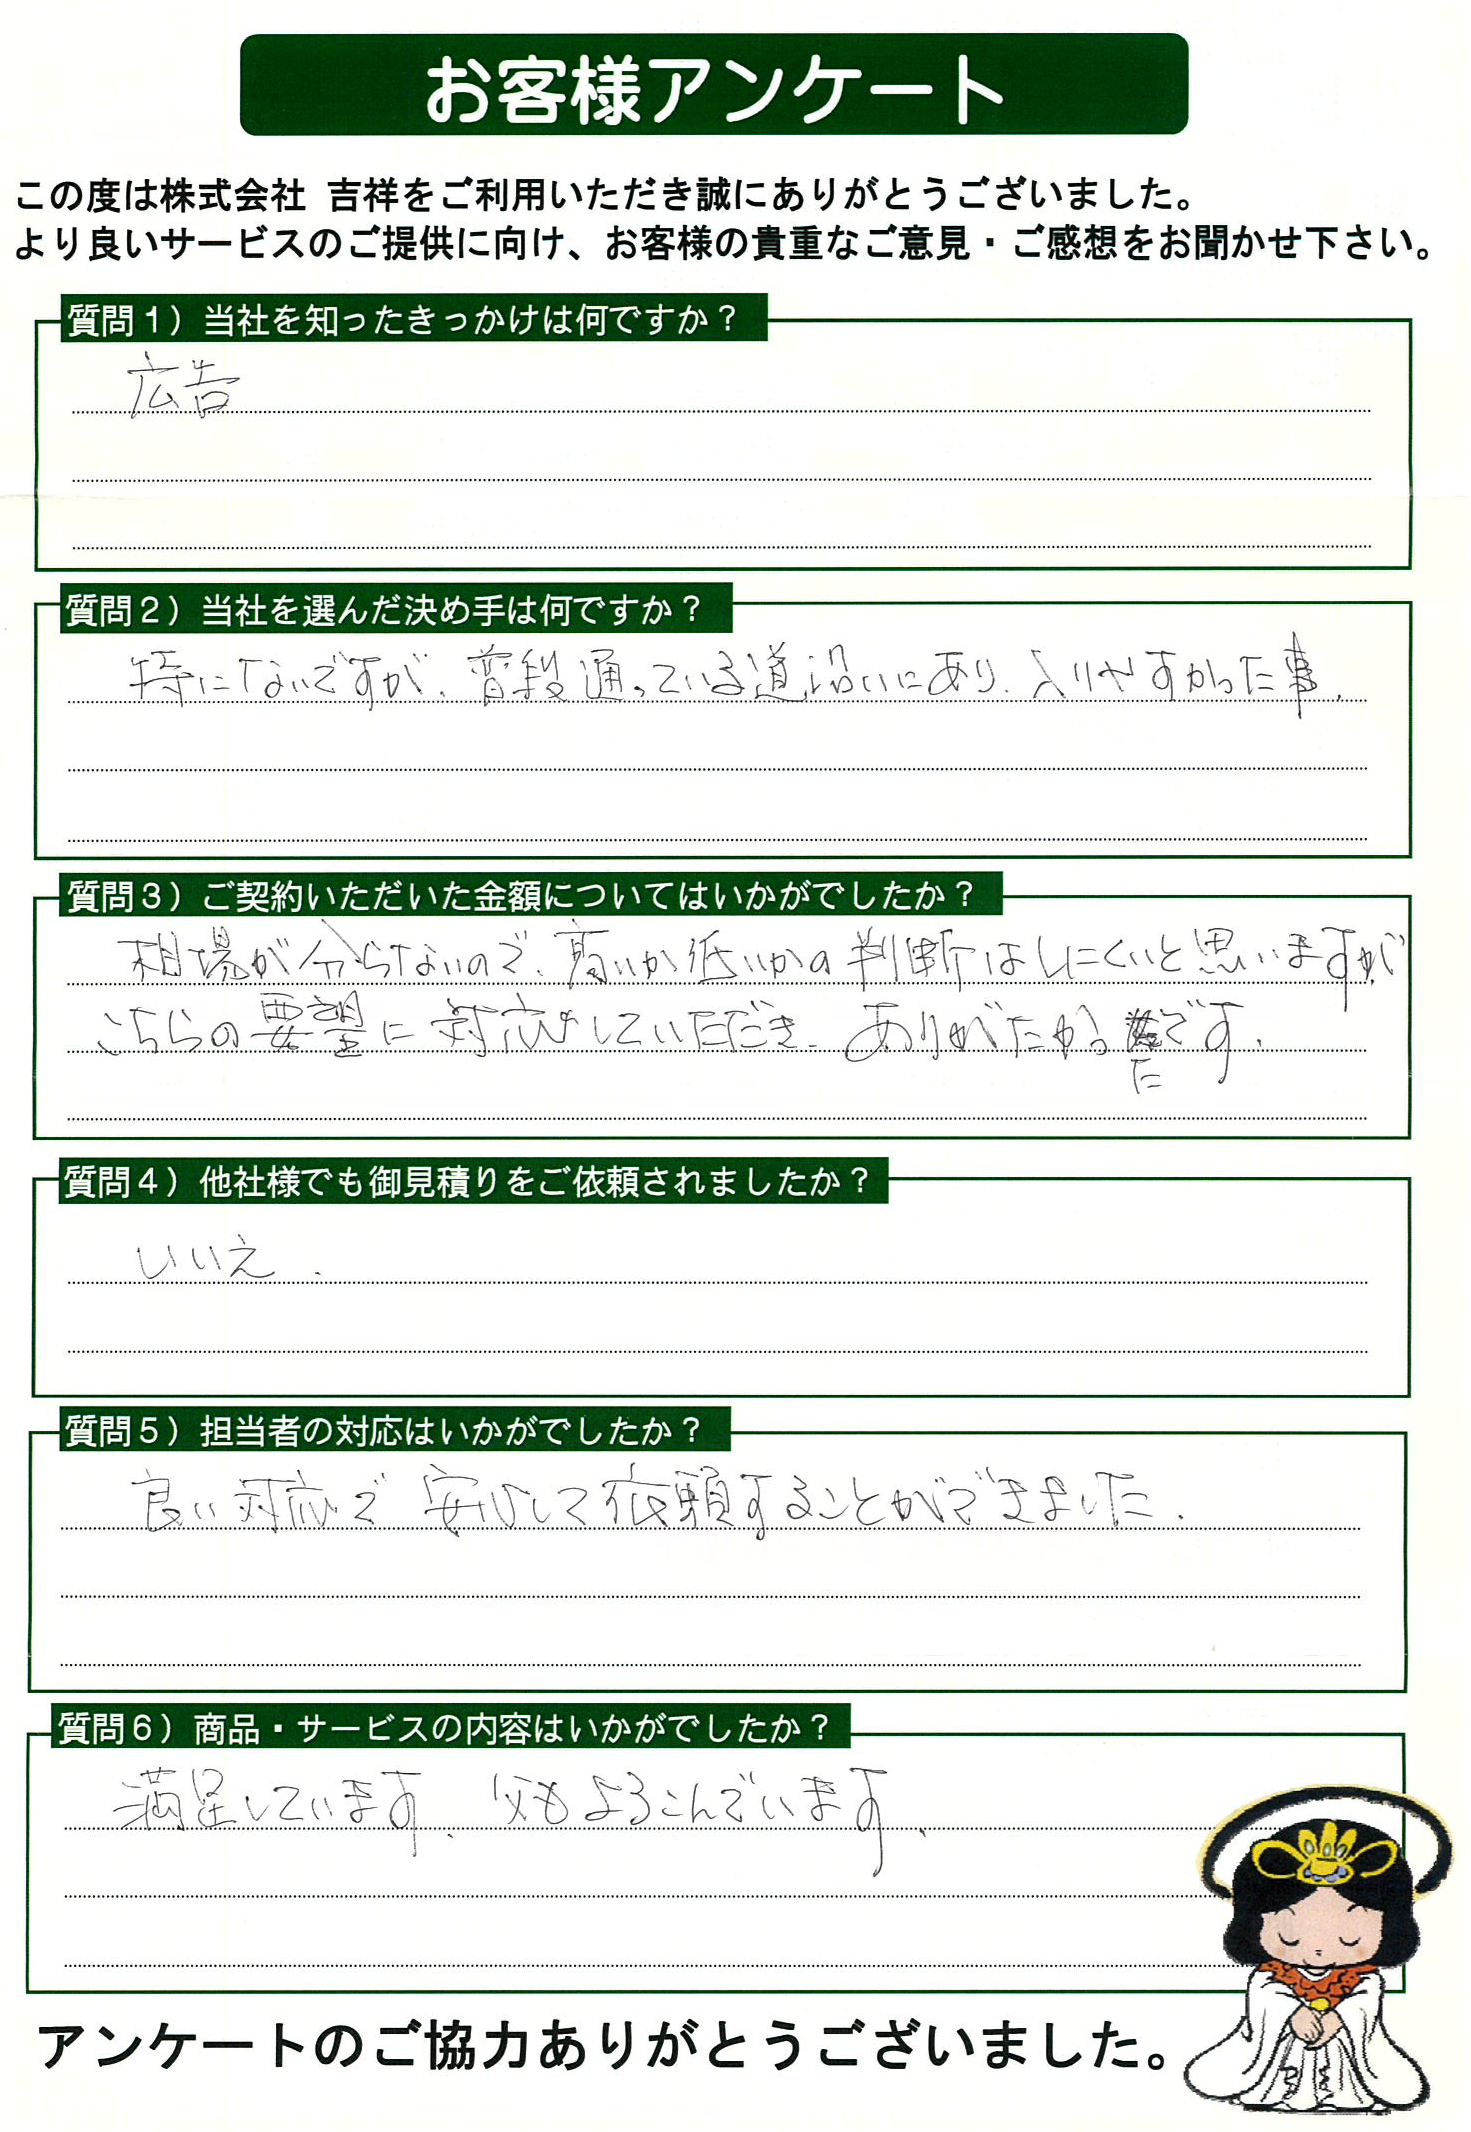 お客様アンケート
この度は株式会社 吉祥をご利用いただき誠にありがとうございました。
より良いサービスのご提供に向け、お客様の貴重なご意見・ご感想をお聞かせ下さい。
質問1）当社を知ったきっかけは何ですか？
広告
質問2）当社を選んだ決め手は何ですか？
特にないですが、普段通っている道沿いにあり、入りやすかった事。
質問3）ご契約いただいた金額についてはいかがでしたか？
相場が分らないので、高いか低いかの判断はしにくいと思いますが、
こちらの要望に対応していただき、ありがたかったです。
質問4）他社様でも御見積りをご依頼されましたか？
いいえ。
質問5）担当者の対応はいかがでしたか？
良い対応で安心して依頼することができました。
質問6）商品・サービスの内容はいかがでしたか？
満足しています。父もよろこんでいます。
アンケートのご協力ありがとうございました。